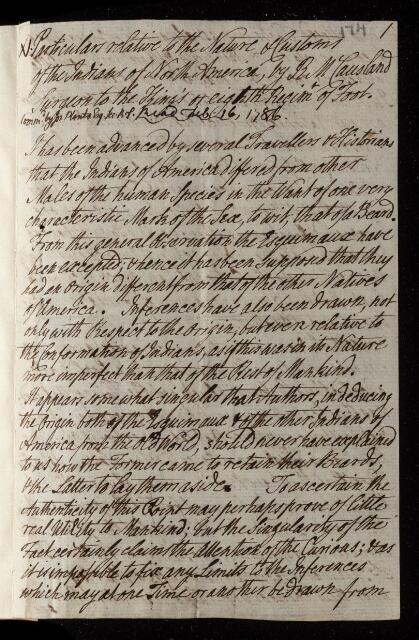 174 1
Particulars relative to the Nature & Customs
of the Indians of North America, by Mr McCausland
Surgeon to the King's or eighth Regimt of Foot.
Commd by Jos Planta Esq Sec R.S. Read Feb. 16, 1786.
It has been advanced by several Travellers & Historians
that the Indians of America differed from other
Males of the human Species in the Want of one very
characteristic Mark of the Sex, to wit, that of a Beard.
From this general Observation the Esquimaux have
been excepted, & hence it has been supposed that they
had an Origin different from that of the other Natives
of America. Inferences have also been drawn, not
only with Respect to the Origin, but even relative to
the Conformation of Indians, as if this was in its Nature
more imperfect than that of the Rest of Mankind.
It appears somewhat singular that Authors, in deducing
the Origin both of the Esquimaux & of the other Indians of
America from the Old World, should never have explained
to us how the Former came to retain their Beards,
& the Latter to lay them aside. To ascertain the
Authenticity of this Point may perhaps prove of little
real Utility to Mankind; but the Singularity of the
Fact certainly claims the Attention of the Curious; & as
it is impossible to fix any Limits to the Inferences
which may at one Time or another be drawn from